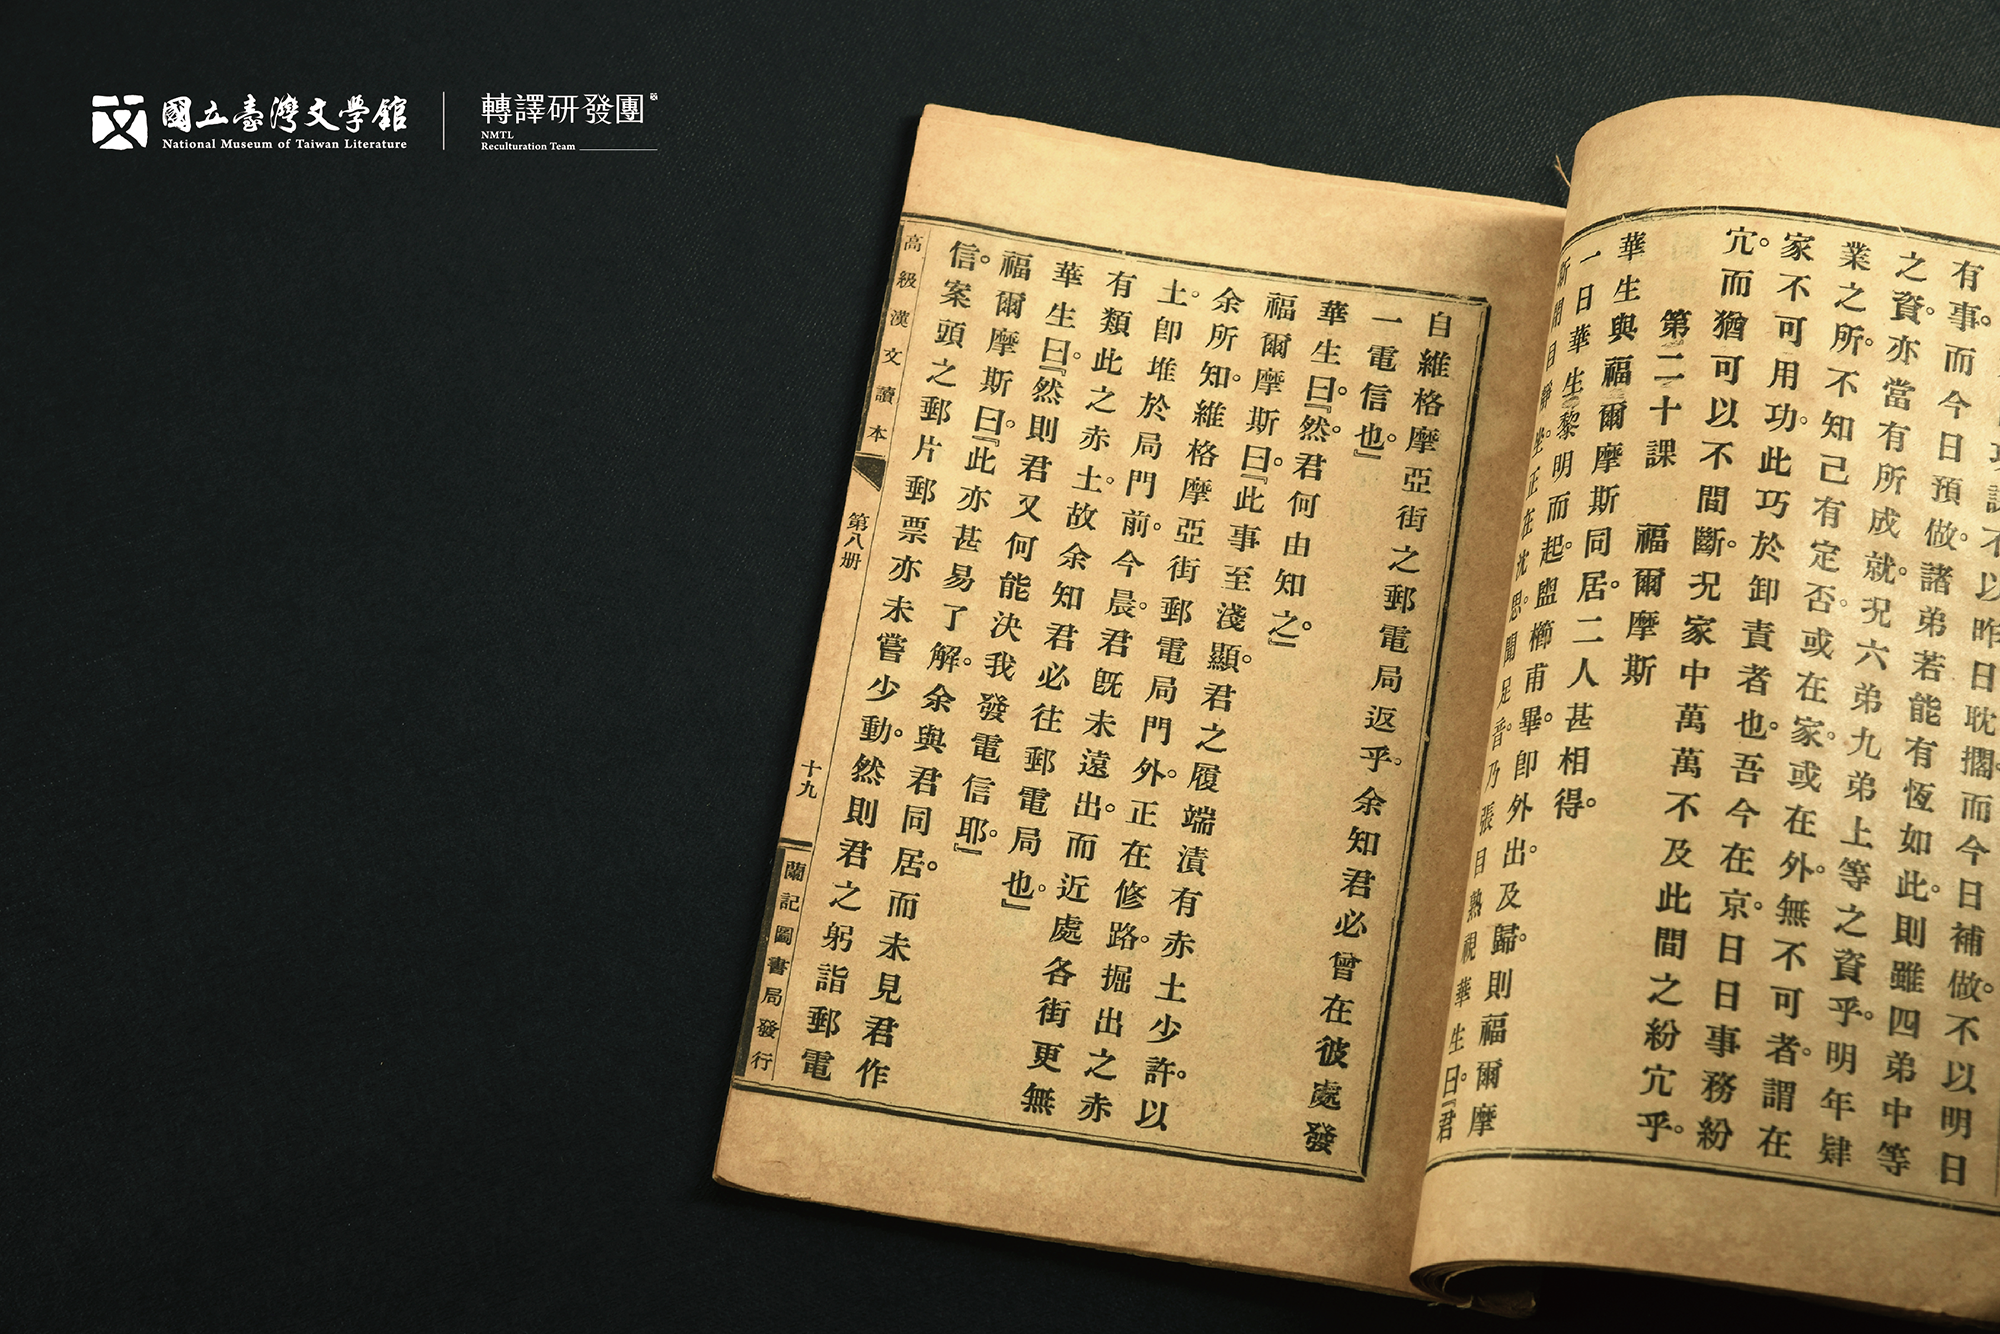 國立臺灣文學館
National Museum of Taiwan Literature
轉譯研發團
NMTL
Reculturation Team
不以昨日耽擱。而今日補做。不以明日
有事。而今日預做。諸弟若能有恆如此。則雖四弟中等
之資。亦當有所成就。況六弟九弟上等之資乎。明年肄
業之所。不知己有定否。或在家。或在外。無不可者。謂在
家不可用功。此巧於卸責者也。吾今在京。日日事務紛
宂。而猶可以不間斷。況家中萬萬不及此間之紛宂乎。
第二十課　福爾摩斯
華生與福爾摩斯同居。二人甚相得。
一日華生黎明而起。盥櫛甫畢。卽外出。及歸。則福爾摩
斯閉目靜坐。正在沈思。聞足音。乃張目熟視華生曰。『君
自維格摩亞街之郵電局返乎。余知君必曾在彼處發
一電信也。』
華生曰。『然君何由知之。』
福爾摩斯曰。『此事至淺顯。君之履端漬有赤土少許。以
余所知。維格摩亞街郵電局門外。正在修路。掘出之赤
土。卽堆於局門前。今晨君旣未遠出。而近處各街更無
有類此之赤土。故余知君必往郵電局也。』
華生曰。『然則君又何能決我發電信耶。』
福爾摩斯曰。『此亦甚易了解。余與君同居。而未見君作
信。案頭之郵片郵票亦未嘗少動。然則君之躬詣郵電
高級漢文讀本
第八册
十九
蘭記圖書局發行